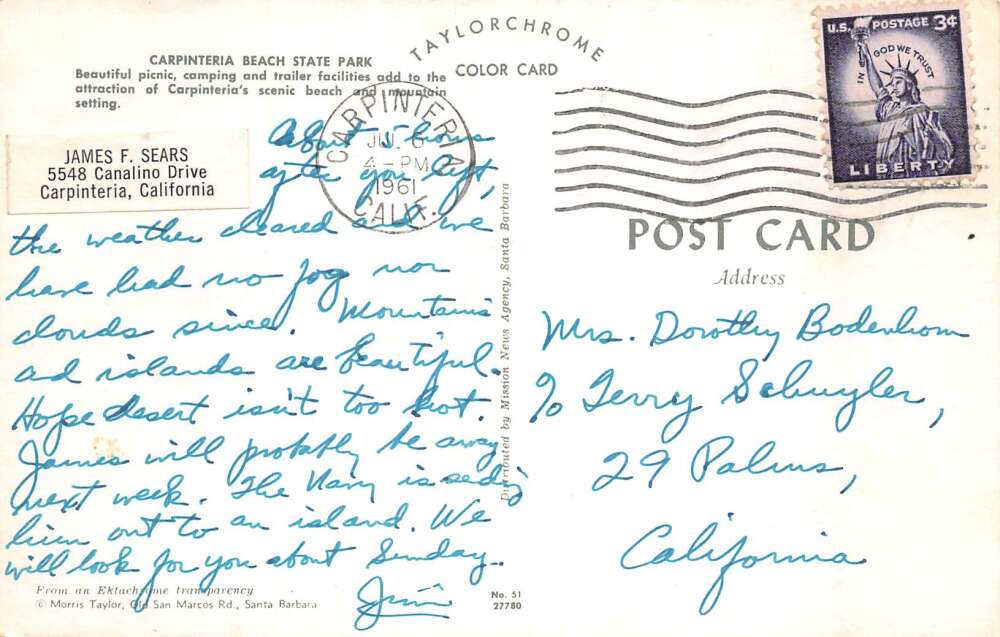 CARPINTERIA BEACH STATE PARK
Beautiful picnic, camping and trailer facilities add to the
attraction of Carpinteria's scenic beach and mountain
setting.
TAYLORCHROME
COLOR CARD
JAMES F. SEARS
5548 Canalino Drive
Carpinteria, California
CARPINTERIA
JUL 6
4-PM
1961
CALIF.
U.S. POSTAGE 3¢
IN GOD WE TRUST
LIBERTY
About 5 hours
after you left,
the weather cleared and we
have had no fog nor
clouds since. Mountains
and islands are beautiful.
Hope desert isn't too hot.
James will probably be away
next week. The Navy is sending
him out to an island. We
will look for you about Sunday.
Jim
From an Ektachrome transparency
© Morris Taylor, Old San Marcos Rd., Santa Barbara
No. 51
27780
Distributed by Mission News Agency, Santa Barbara
POST CARD
Address
Mrs. Dorothy Bodenhom
% Terry Schuyler,
29 Palms,
California